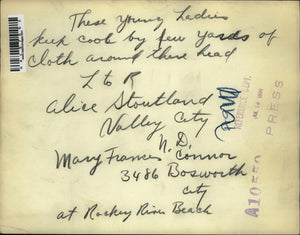 These Young Ladies
keep cool by few yards of
cloth around there head
L to R
Alice Stoutland
Valley City
N. D.
Mary Frances Connor
3486 Bosworth
City
at Rockey River Beach
REFERENCE DEPT.
PRESS